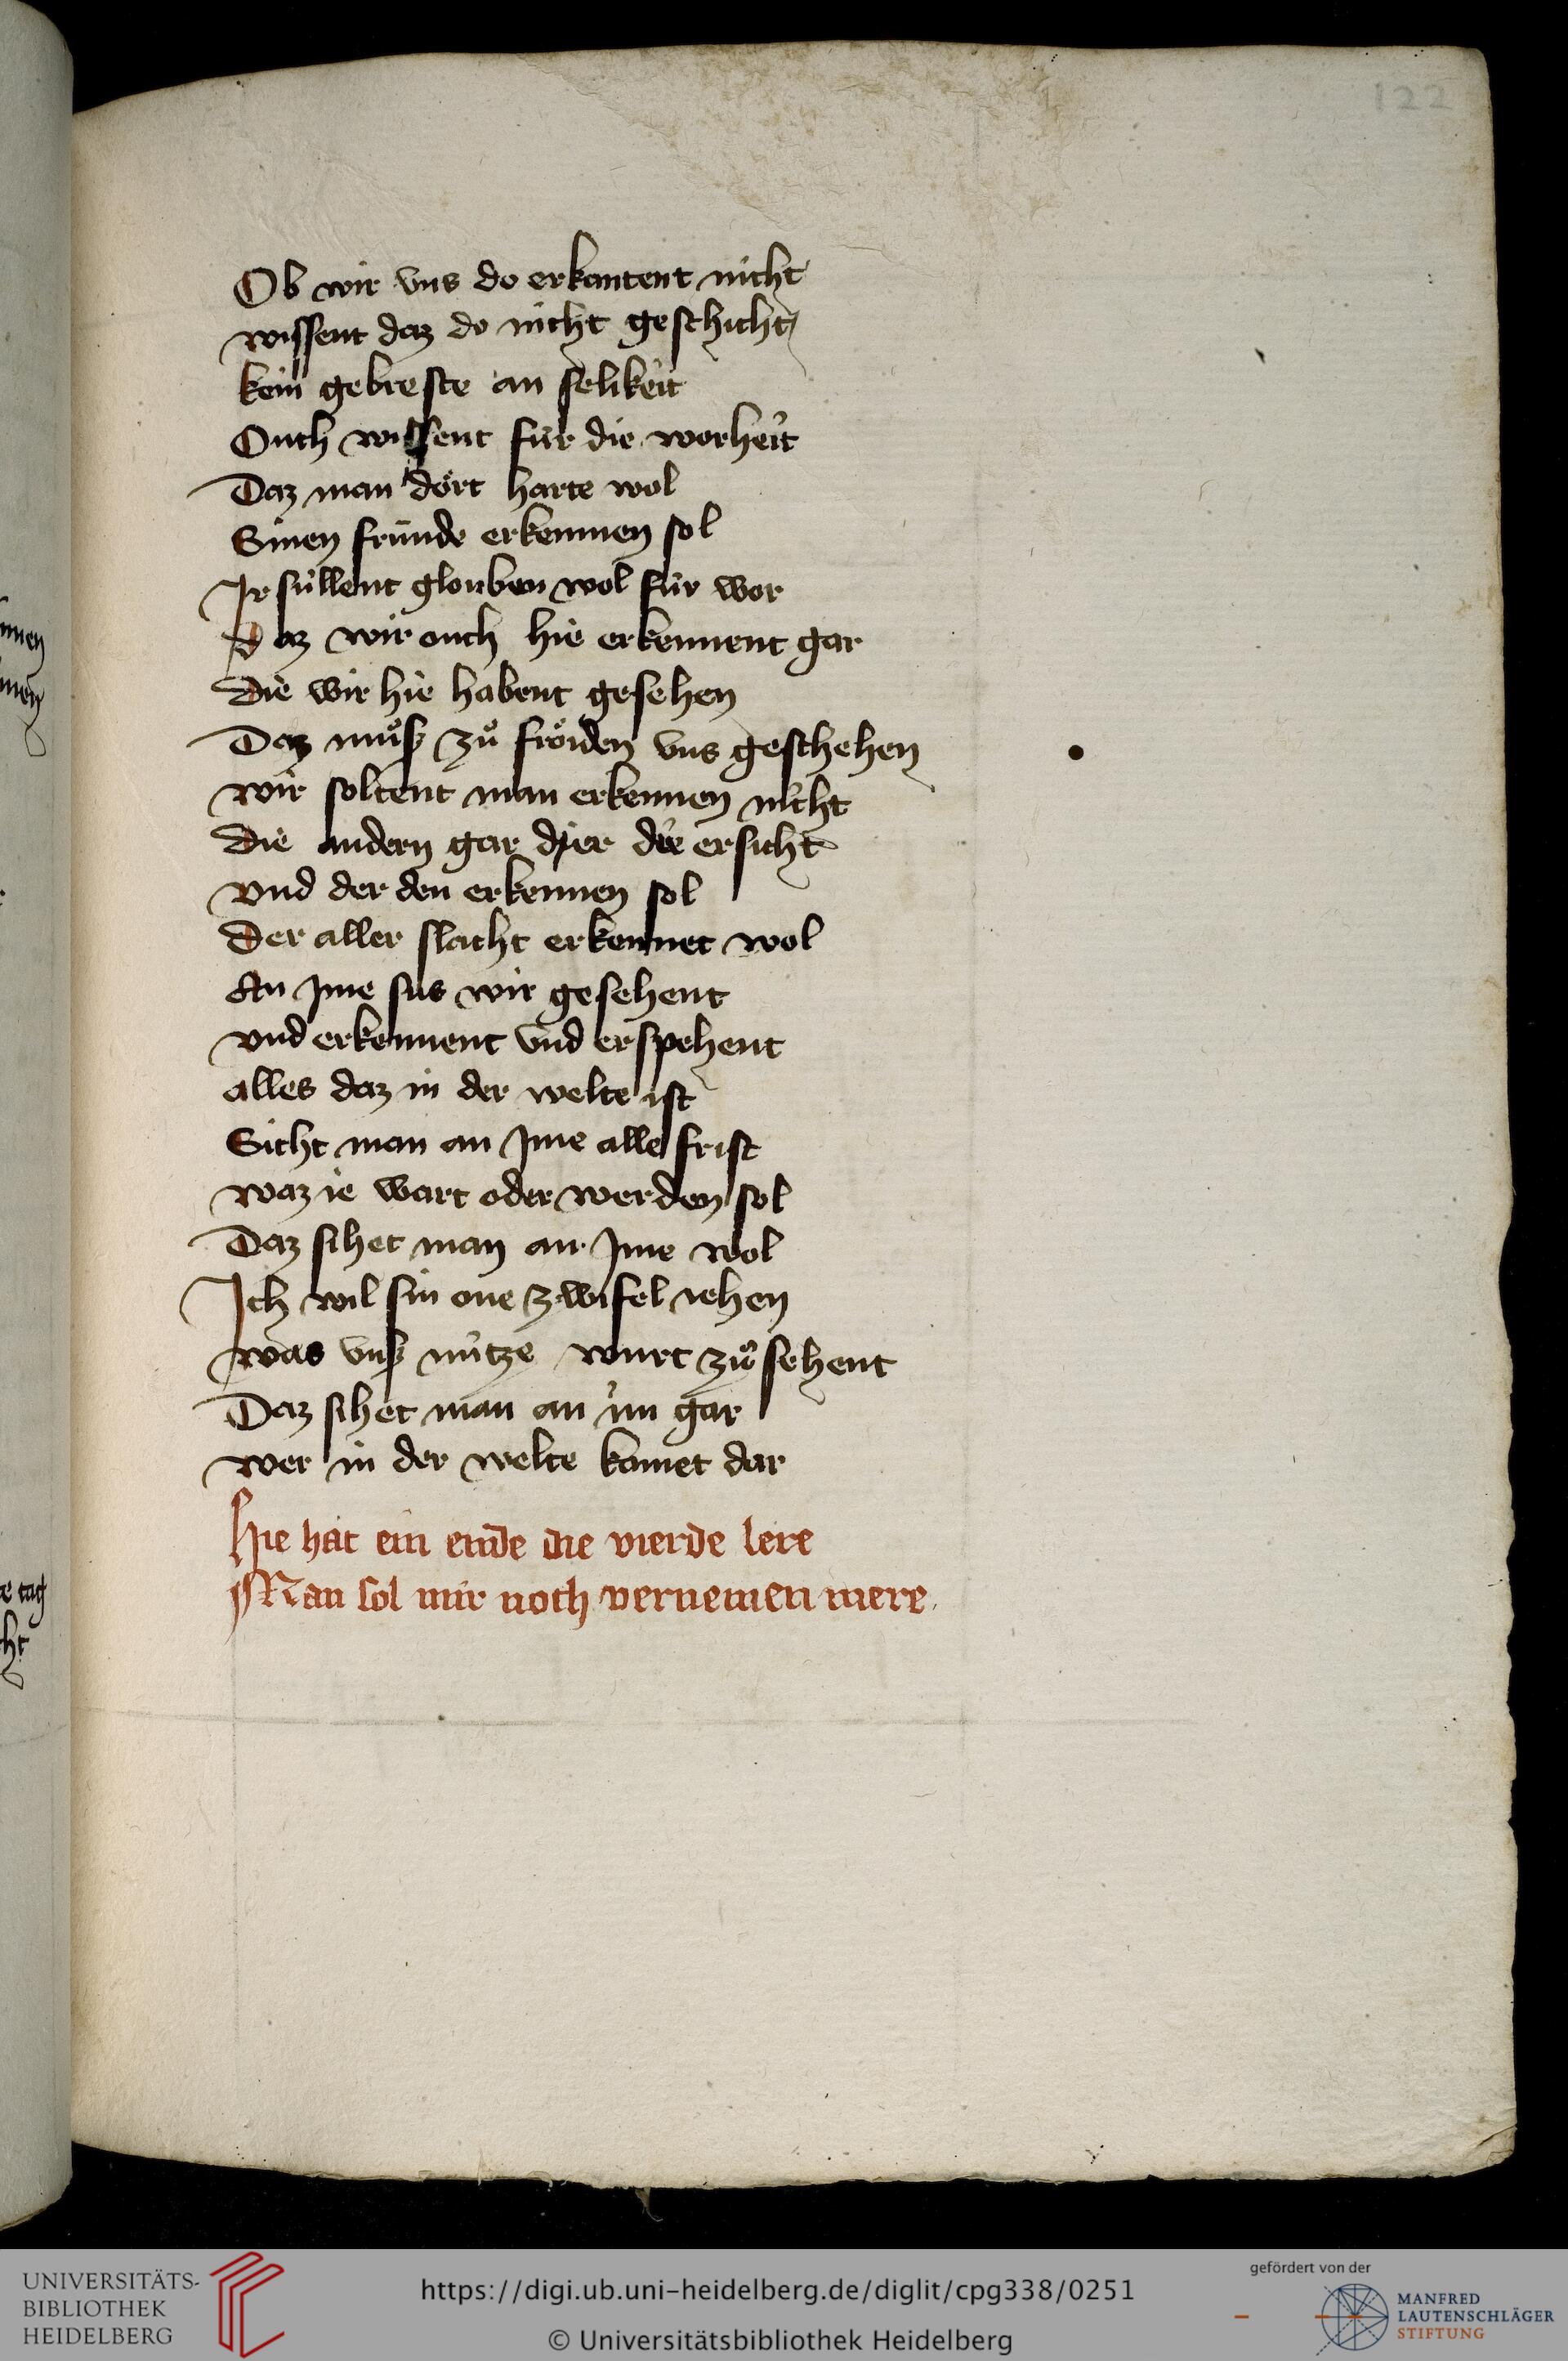 122
Ob wir vns do erkantent nicht
wissent daz do nicht geschicht
kein gebreste an selikeit
Ouch wissent für die worheit
Daz man dört harte wol
Sinen fründe erkennen sol
Ir süllent glouben wol für wor
Daz wir ouch hie erkennent gar
Die wir hie habent gesehen
Daz muͦß zuͦ froͤiden vns geschehen
wir soltent man erkennen nicht
Die andern gar der ersicht
vnd der den erkennen sol
Der aller slacht erkennet wol
An jme sus wir gesehent
vnd erkennent vnd erspehent
alles daz in der welte ist
Sicht man an jme alle frist
waz ie wart oder werden sol
Daz sihet man an jme wol
Ich wil sin one zwifel iehen
was vnß nütze wurt zuͦ sehent
Daz sihet man an im gar
wer in der welte komet dar
Hie hat ein ende die vierde lere
Man sol mir noch vernemen mere
nnen
nnen
e tag
ht
UNIVERSITÄTS-
BIBLIOTHEK
HEIDELBERG
https://digi.ub.uni-heidelberg.de/diglit/cpg338/0251
© Universitätsbibliothek Heidelberg
gefördert von der
MANFRED
LAUTENSCHLÄGER
STIFTUNG